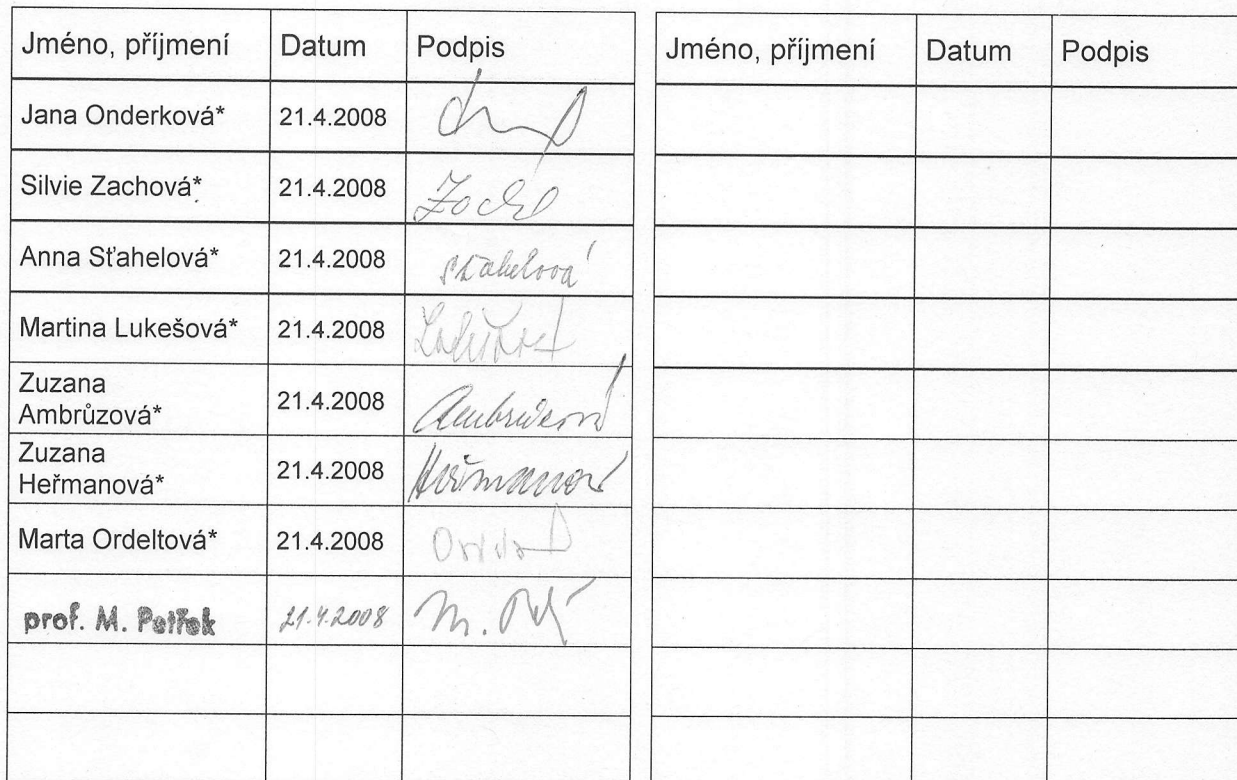 Jméno, příjmení Datum Podpis
Jana Onderková* 21.4.2008
Silvie Zachová* 21.4.2008
Anna Sťahelová* 21.4.2008 Sťahelová
Martina Lukešová* 21.4.2008 Lukešová
Zuzana
Ambrůzová* 21.4.2008 Ambrůzová
Zuzana
Heřmanová* 21.4.2008 Heřmanová
Marta Ordeltová* 21.4.2008
prof. M. Petřek 21.4.2008
Jméno, příjmení Datum Podpis